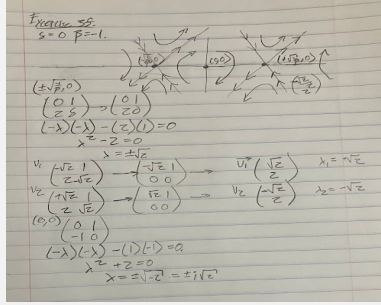 Exercise 5.8.
δ=0 β=-1.
(±√β,0)
(0 1
2 δ) → (0 1
2 0)
(-λ)(-λ) - (2)(1) = 0
λ² - 2 = 0
λ = ±√2
V₁ (-√2 1
2 -√2) → (-√2 1
0 0) → V₁ (√2
2) λ₁ = +√2
V₂ (+√2 1
2 √2) → (√2 1
0 0) → V₂ (-√2
2) λ₂ = -√2
(0,0) (0 1
-1 0)
(-λ)(-λ) - (1)(-1) = 0.
λ² + 2 = 0
λ = ±√-2 = ±i√2
(0,0)